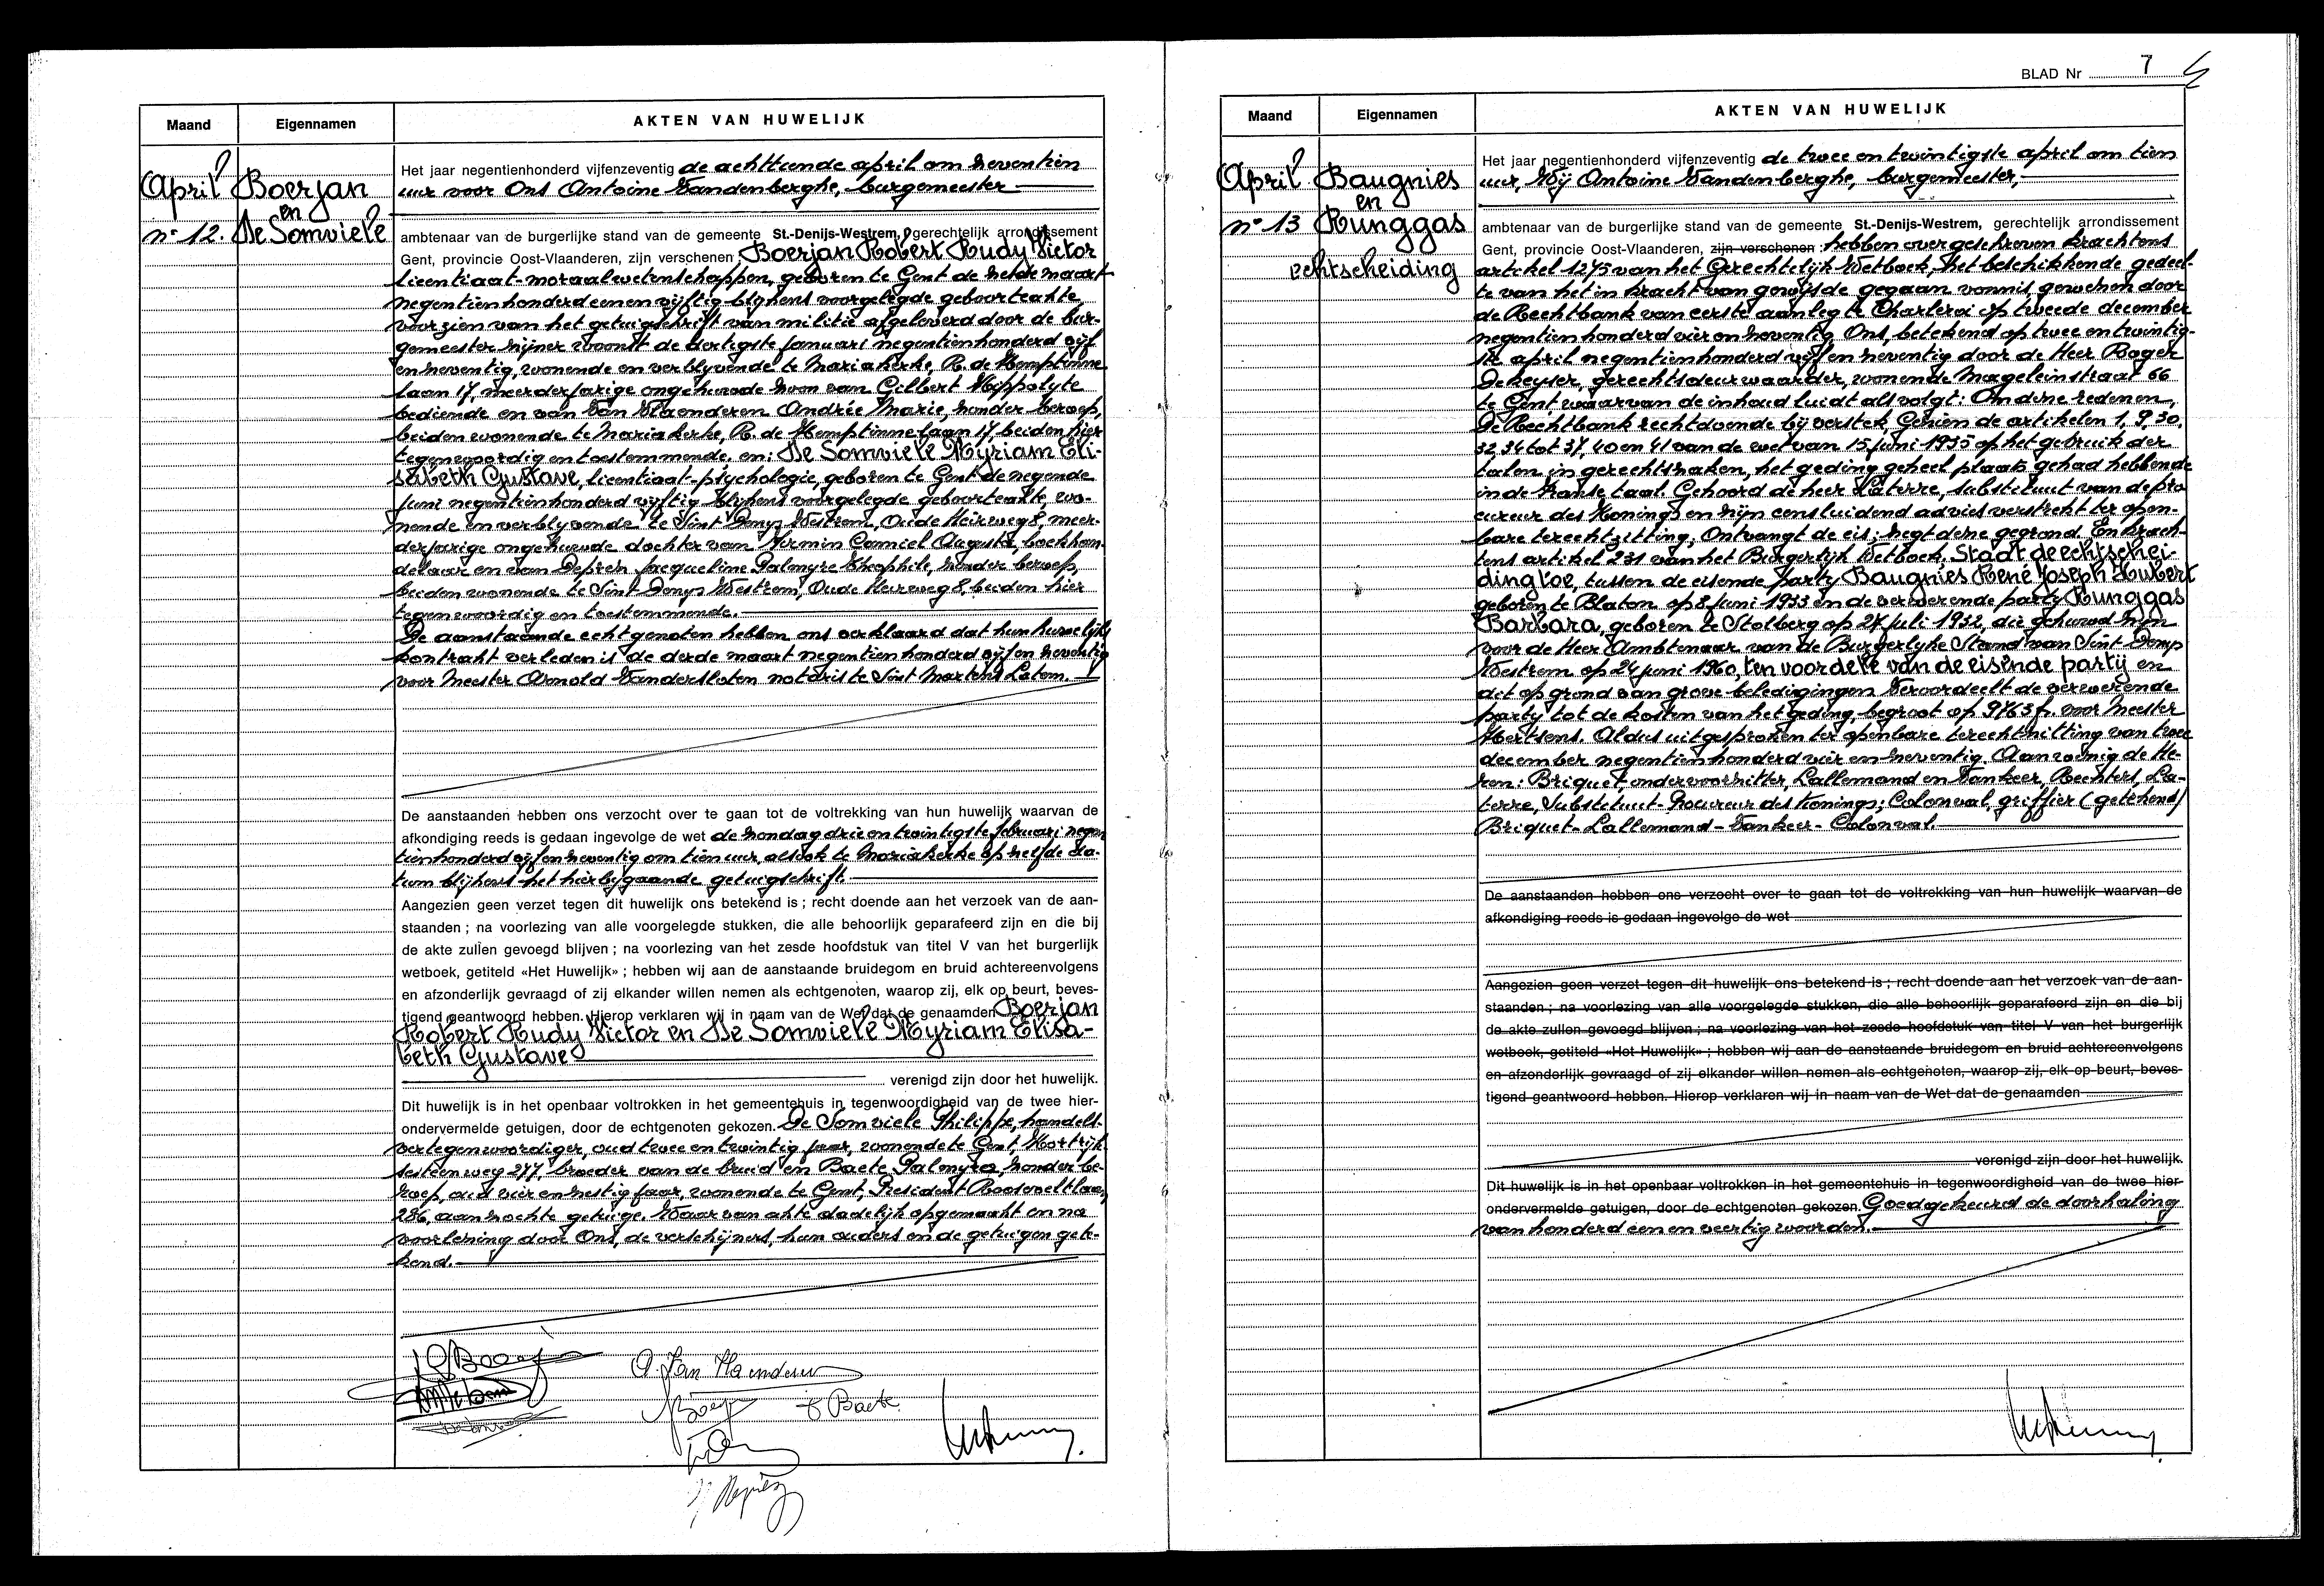 Maand
Eigennamen
AKTEN VAN HUWELIJK
April
Boerjan
en
n° 12.
De Somviele
Het jaar negentienhonderd vijfenzeventig de achttiende april om zeventien
uur voor Ons Antoine Vandenberghe, burgemeester
ambtenaar van de burgerlijke stand van de gemeente St.-Denijs-Westrem, gerechtelijk arrondissement
Gent, provincie Oost-Vlaanderen, zijn verschenen Boerjan Robert Rudy Victor
licentiaat-moraalwetenschappen, geboren te Gent de zesde maart
negentienhonderd eenenvijftig blijkens voorgelegde geboorteakte,
voorzien van het getuigschrift van militie afgeleverd door de bur-
gemeester zijner woonst de dertigste januari negentienhonderd vijf
enzeventig, wonende en verblyvende te Mariakerke, R. de Hemptinne
laan 17, meerderjarige ongehuwde zoon van Gilbert Hippolyte
bediende en van Van Vlaenderen Andrée Marie, zonder beroep,
beiden wonende te Mariakerke, R. de Hemptinnelaan 17, beiden hier
tegenwoordig en toestemmende. en: De Somviele Myriam Eli-
sabeth Gustave, licentiaat-psychologie, geboren te Gent de negende
juni negentienhonderd vyftig blijkens voorgelegde geboorteakte, wo-
nende en verblyvende te Sint Denys Westrem, Oude Heirweg 8, meer-
derjarige ongehuwde dochter van Firmin Camiel Augusta, boekhou-
delaar en van Deprez Jacqueline Palmyre Theophile, zonder beroep,
beiden wonende te Sint Denys Westrem, Oude Heirweg 8, beiden hier
tegenwoordig en toestemmende.
De aanstaande echtgenoten hebben ons verklaard dat hun huwelijks
kontrakt verleden is de derde maart negentienhonderd vijfenzeventig
voor Meester Arnold Vandersloten notaris te Sint Martens Latem.
De aanstaanden hebben ons verzocht over te gaan tot de voltrekking van hun huwelijk waarvan de
afkondiging reeds is gedaan ingevolge de wet de zondag drieentwintigste februari negen
tienhonderd vijfenzeventig om tien uur, alsook te Mariakerke op zelfde da-
tum blijkens het hierbijgaande getuigschrift.
Aangezien geen verzet tegen dit huwelijk ons betekend is ; recht doende aan het verzoek van de aan-
staanden ; na voorlezing van alle voorgelegde stukken, die alle behoorlijk geparafeerd zijn en die bij
de akte zullen gevoegd blijven ; na voorlezing van het zesde hoofdstuk van titel V van het burgerlijk
wetboek, getiteld «Het Huwelijk» ; hebben wij aan de aanstaande bruidegom en bruid achtereenvolgens
en afzonderlijk gevraagd of zij elkander willen nemen als echtgenoten, waarop zij, elk op beurt, beves-
tigend geantwoord hebben. Hierop verklaren wij in naam van de Wet dat de genaamden Boerjan
Robert Rudy Victor en De Somviele Myriam Elisa-
beth Gustave
verenigd zijn door het huwelijk.
Dit huwelijk is in het openbaar voltrokken in het gemeentehuis in tegenwoordigheid van de twee hier-
ondervermelde getuigen, door de echtgenoten gekozen. De Somviele Philippe, handels-
vertegenwoordiger, oud twee en twintig jaar, wonende te Gent, Kortrijk
sesteenweg 277, broeder van de bruid en Baete Palmyre, zonder be-
roep, oud vier en zestig jaar, wonende te Gent, President Rooseveltlaan
286, aanzochte getuige. Waarvan akte dadelijk opgemaakt en na
voorlezing door Ons, de verschijners, hun ouders en de getuigen gete-
kend.
A. Van Vlaenderen
Baete
BLAD Nr 7
Maand
Eigennamen
AKTEN VAN HUWELIJK
April
Baugnies
en
n° 13
Runggas
echtscheiding
Het jaar negentienhonderd vijfenzeventig de twee en twintigste april om tien
uur, Wij Antoine Vandenberghe, burgemeester,
ambtenaar van de burgerlijke stand van de gemeente St.-Denijs-Westrem, gerechtelijk arrondissement
Gent, provincie Oost-Vlaanderen, zijn verschenen : hebben overgeschreven krachtens
artikel 1275 van het Gerechtelijk Wetboek, het beschikkende gedeel-
te van het in kracht van gewijsde gegaan vonnis, gewezen door
de Rechtbank van eerste aanleg te Charleroi op tweede december
negentienhonderd vier en zeventig Ons, betekend op twee en twintig-
ste april negentienhonderd vijfenzeventig door de Heer Roger
Dekeyser, gerechtsdeurwaarder, wonende Mageleinstraat 66
te Gent waarvan de inhoud luidt als volgt: Om deze redenen,
De Rechtbank rechtdoende bij verstek, Gezien de artikelen 1, 9, 30,
32, 34 tot 37, 40 en 41 van de wet van 15 juni 1935 op het gebruik der
talen in gerechtszaken, het geding geheel plaats gehad hebbende
in de Franse taal. Gehoord de heer Laterre, substituut van de pro
cureur des Konings en zijn eensluidend advies verstrekt ter open-
bare terechtzitting; Ontvangt de eis; zegt deze gegrond. En krach-
tens artikel 231 van het Burgerlijk Wetboek, Staat de echtschei-
ding toe, tussen de eisende party Baugnies René Joseph Hubert
geboren te Blaton op 8 juni 1933 en de verwerende party Runggas
Barbara, geboren te Stolberg op 27 juli 1932, die gehuwd zijn
voor de Heer Ambtenaar van de Burgerlyke Stand van Sint Denys
Westrem op 24 juni 1960, ten voordele van de eisende partij en
dit op grond van grove beledigingen Veroordeelt de verwerende
party tot de kosten van het geding, begroot op 9763 fr. voor Meester
Mertsens. Aldus uitgesproken ter openbare terechtzitting van twee
december negentienhonderd vier en zeventig. Aanwezig de He-
ren: Briquet, ondervoorzitter, Lallemand en Vankeer, Rechters, La-
terre, Substituut-Procureur des Konings; Colonval, griffier (getekend)
Briquet - Lallemand - Vankeer - Colonval.
De aanstaanden hebben ons verzocht over te gaan tot de voltrekking van hun huwelijk waarvan de
afkondiging reeds is gedaan ingevolge de wet
Aangezien geen verzet tegen dit huwelijk ons betekend is ; recht doende aan het verzoek van de aan-
staanden ; na voorlezing van alle voorgelegde stukken, die alle behoorlijk geparafeerd zijn en die bij
de akte zullen gevoegd blijven ; na voorlezing van het zesde hoofdstuk van titel V van het burgerlijk
wetboek, getiteld «Het Huwelijk» ; hebben wij aan de aanstaande bruidegom en bruid achtereenvolgens
en afzonderlijk gevraagd of zij elkander willen nemen als echtgenoten, waarop zij, elk op beurt, beves-
tigend geantwoord hebben. Hierop verklaren wij in naam van de Wet dat de genaamden
verenigd zijn door het huwelijk.
Dit huwelijk is in het openbaar voltrokken in het gemeentehuis in tegenwoordigheid van de twee hier-
ondervermelde getuigen, door de echtgenoten gekozen. Goedgekeurd de doorhaling
van honderd een en veertig woorden.